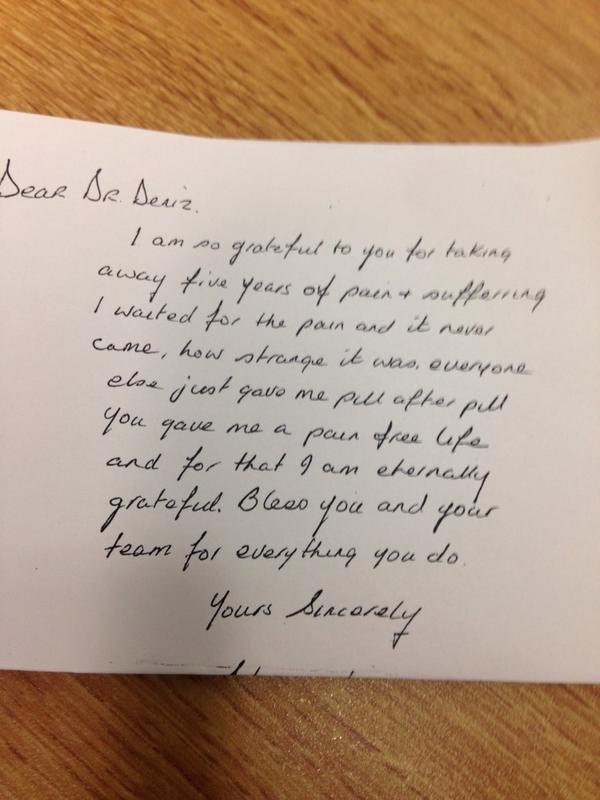 Dear Dr. Deniz.
I am so grateful to you for taking
away five years of pain + sufferring
I waited for the pain and it never
came, how strange it was. everyone
else just gave me pill after pill
you gave me a pain free life
and for that I am eternally
grateful. Bless you and your
team for everything you do.
Yours Sincerely